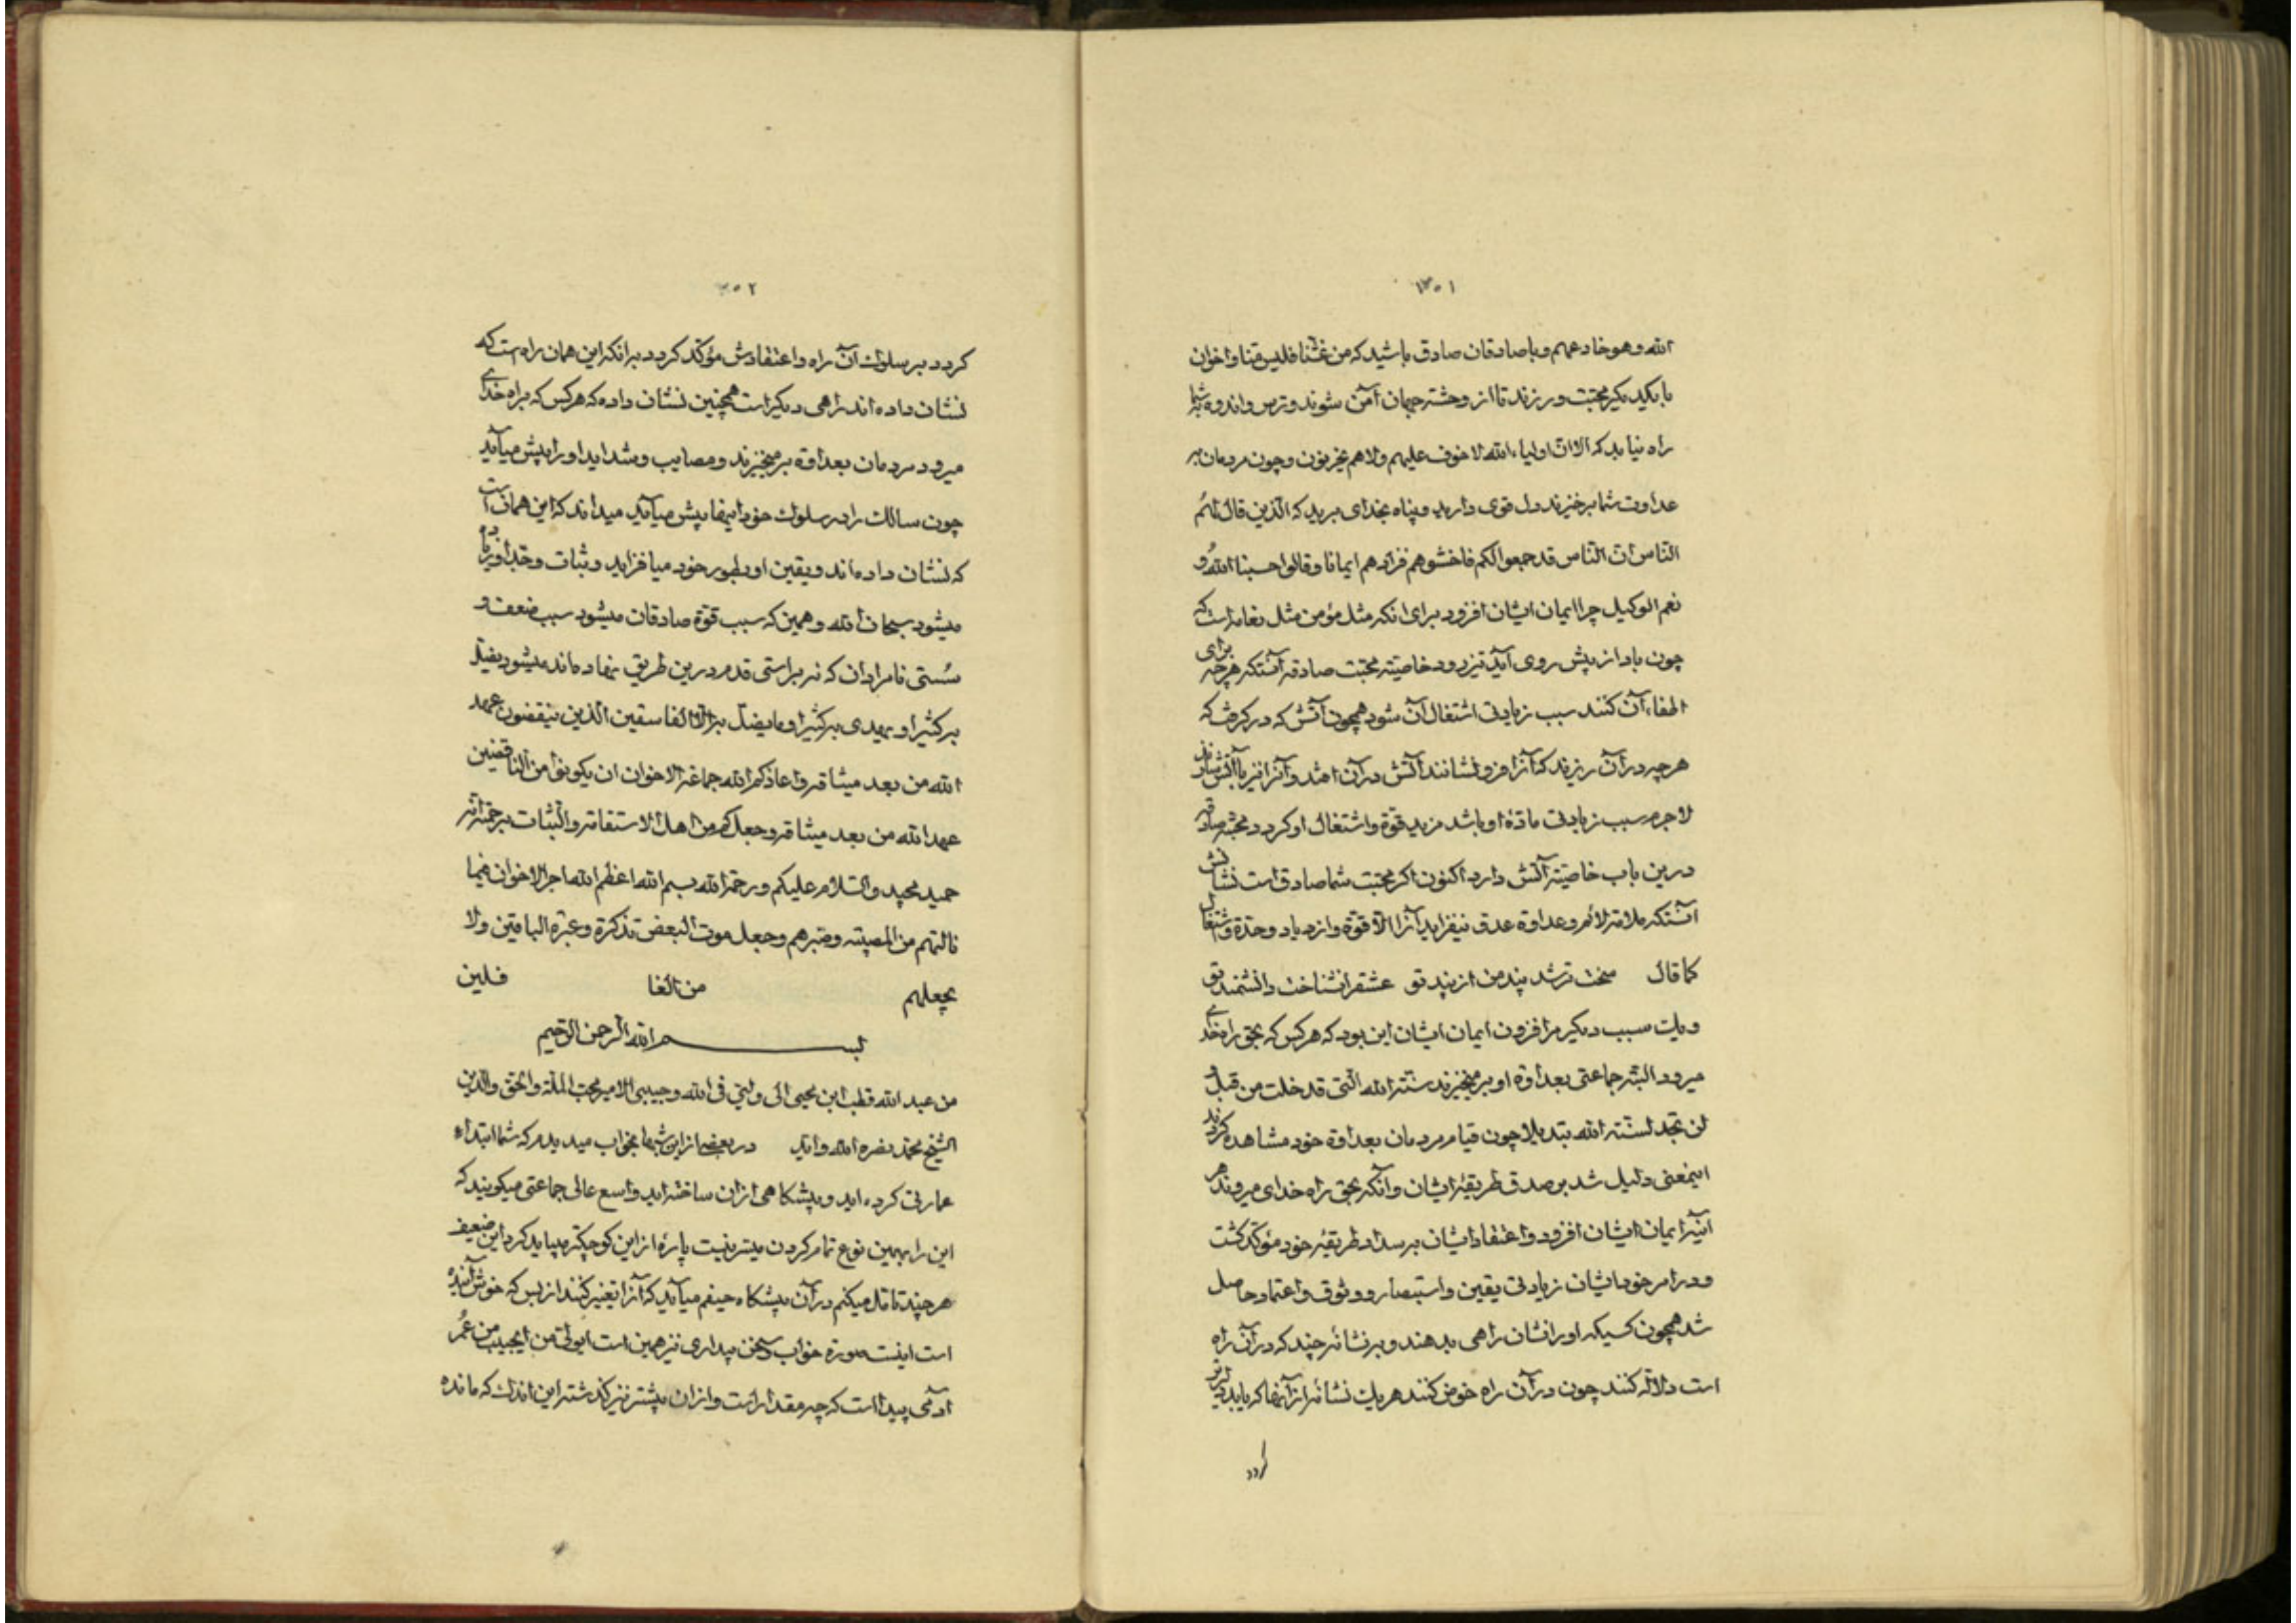 ۱۳۰۱
الله وهو خادعهم وبا صادقان صادق باشید که من غشنا فلیس منا واخوان
با یکدیگر محبت ورزند تا از وحشة جهان آمن شوند وترس واندوه بشما
راه نیابد که الا ان اولیاء الله لا خوف علیهم ولا هم یحزنون وچون مردمان بر
عداوت شما برخیزند دل قوی دارید وپناه بخدای برید که الذین قال لهم
الناس ان الناس قد جمعوا لکم فاخشوهم فزادهم ایمانا وقالوا حسبنا الله و
نعم الوکیل چرا ایمان ایشان افزود برای انکه مثل مؤمن مثل نعامه است که
چون باد از پیش روی آید تیز رود خاصیته محبت صادقه آنستکه هرچه برای
اطفاء آن کنند سبب زیادتی اشتعال آن شود همچون آتش که در گرفت که
هرچه در آن ریزند که آنرا فرو نشانند آتش در آن افتد وآنرا نیز با آتش سازند
لا جرم سبب زیادتی مادۀ او باشد مزید قوة واشتعال او کردد محبة صادقه
درین باب خاصیة آتش دارد اکنون اکر محبت شما صادق است نشانش
آنستکه ملامة لائم وعداوة عدو نیفزاید آنرا الا قوة وازدیاد وحدة واشتعال
کما قال سخت تر شد پند من از پند تو عشق را نشناخت دانشمند تو
ویک سبب دیکر مر افزون ایمان ایشان این بود که هر کس که بحق راه خدای
میرود البته جماعتی بعداوة او بر میخیزند سنة الله التی قد خلت من قبل و
لن تجد لسنة الله تبدیلا چون قیام مردمان بعداوة خود مشاهده کردند
اینمعنی دلیل شد بر صدق طریقۀ ایشان وآنکه بحق راه خدای میروند هر
آینه ایمان ایشان افزود واعتقاد ایشان بر سداد طریقۀ خود مؤکد کشت
ودر امر خود ایشان زیادتی یقین واستبصار ووثوق واعتماد حاصل
شد همچون کسیکه اورا نشان راهی بدهند وبر نشانۀ چند که در آن راه
است دلالة کنند چون در آن راه خوض کنند هر یک نشانۀ از آنها که یابد دلیرتر
کردد
۳۰۲
کردد بر سلوک آن راه واعتقادش مؤکد کردد بر انکه این همان راه است که
نشان داده اند راهی دیکر است همچنین نشان داده که هر کس که براه خدای
میرود مردمان بعداوة بر میخیزند ومصایب وشداید اورا پیش میآید
چون سالک را در سلوک خود اینها پیش میآید میداند که این همان است
که نشان داده اند ویقین او بطور خود میافزاید وثبات وجد او زیاده
میشود سبحان الله وهمین که سبب قوة صادقان میشود سبب ضعف و
سُستی نامرادان که نه براستی قدم درین طریق نهاده اند میشود یضل
به کثیرا و یهدی به کثیرا وما یضل به الا الفاسقین الذین ینقضون عهد
الله من بعد میثاقه واعاذکم الله جماعة الاخوان ان یکونوا من الناقضین
عهد الله من بعد میثاقه وجعلکم من اهل الاستقامة والثبات برحمته انه
حمید مجید والسلام علیکم ورحمة الله بسم الله اعظم الله اجر الاخوان فیما
نالتهم من المصیبة وصبرهم وجعل موت البعض تذکرة وعبرة الباقین ولا
یجعلهم من الغا فلین
بســـم الله الرحمن الرحیم
من عبد الله قطب ابن محیی الی ولیّی فی الله وحبیبی الامیر محب الملة والحق والدین
الشیخ محمد نصره الله وایّد در بعضی از این شبها بخواب میدیدم که شما ابتداء
عمارتی کرده اید وپیشکاهی ازان ساخته اید واسع عالی جماعتی میکویند که
این را بهمین نوع تمام کردن میسر نیست پارۀ از این کوچکتر میباید کرد این ضعیف
هر چند تامل میکنم در آن پیشکاه حیفم میآید که آنرا تغییر کنند از بس که خوش آینده
است اینست صورة خواب وسخن بیداری نیز همین است ای ولی من ای حبیب من عُمر
آدمی پیدا است که چه مقدار است وازان بیشتر نیز کذشته این اندک که مانده